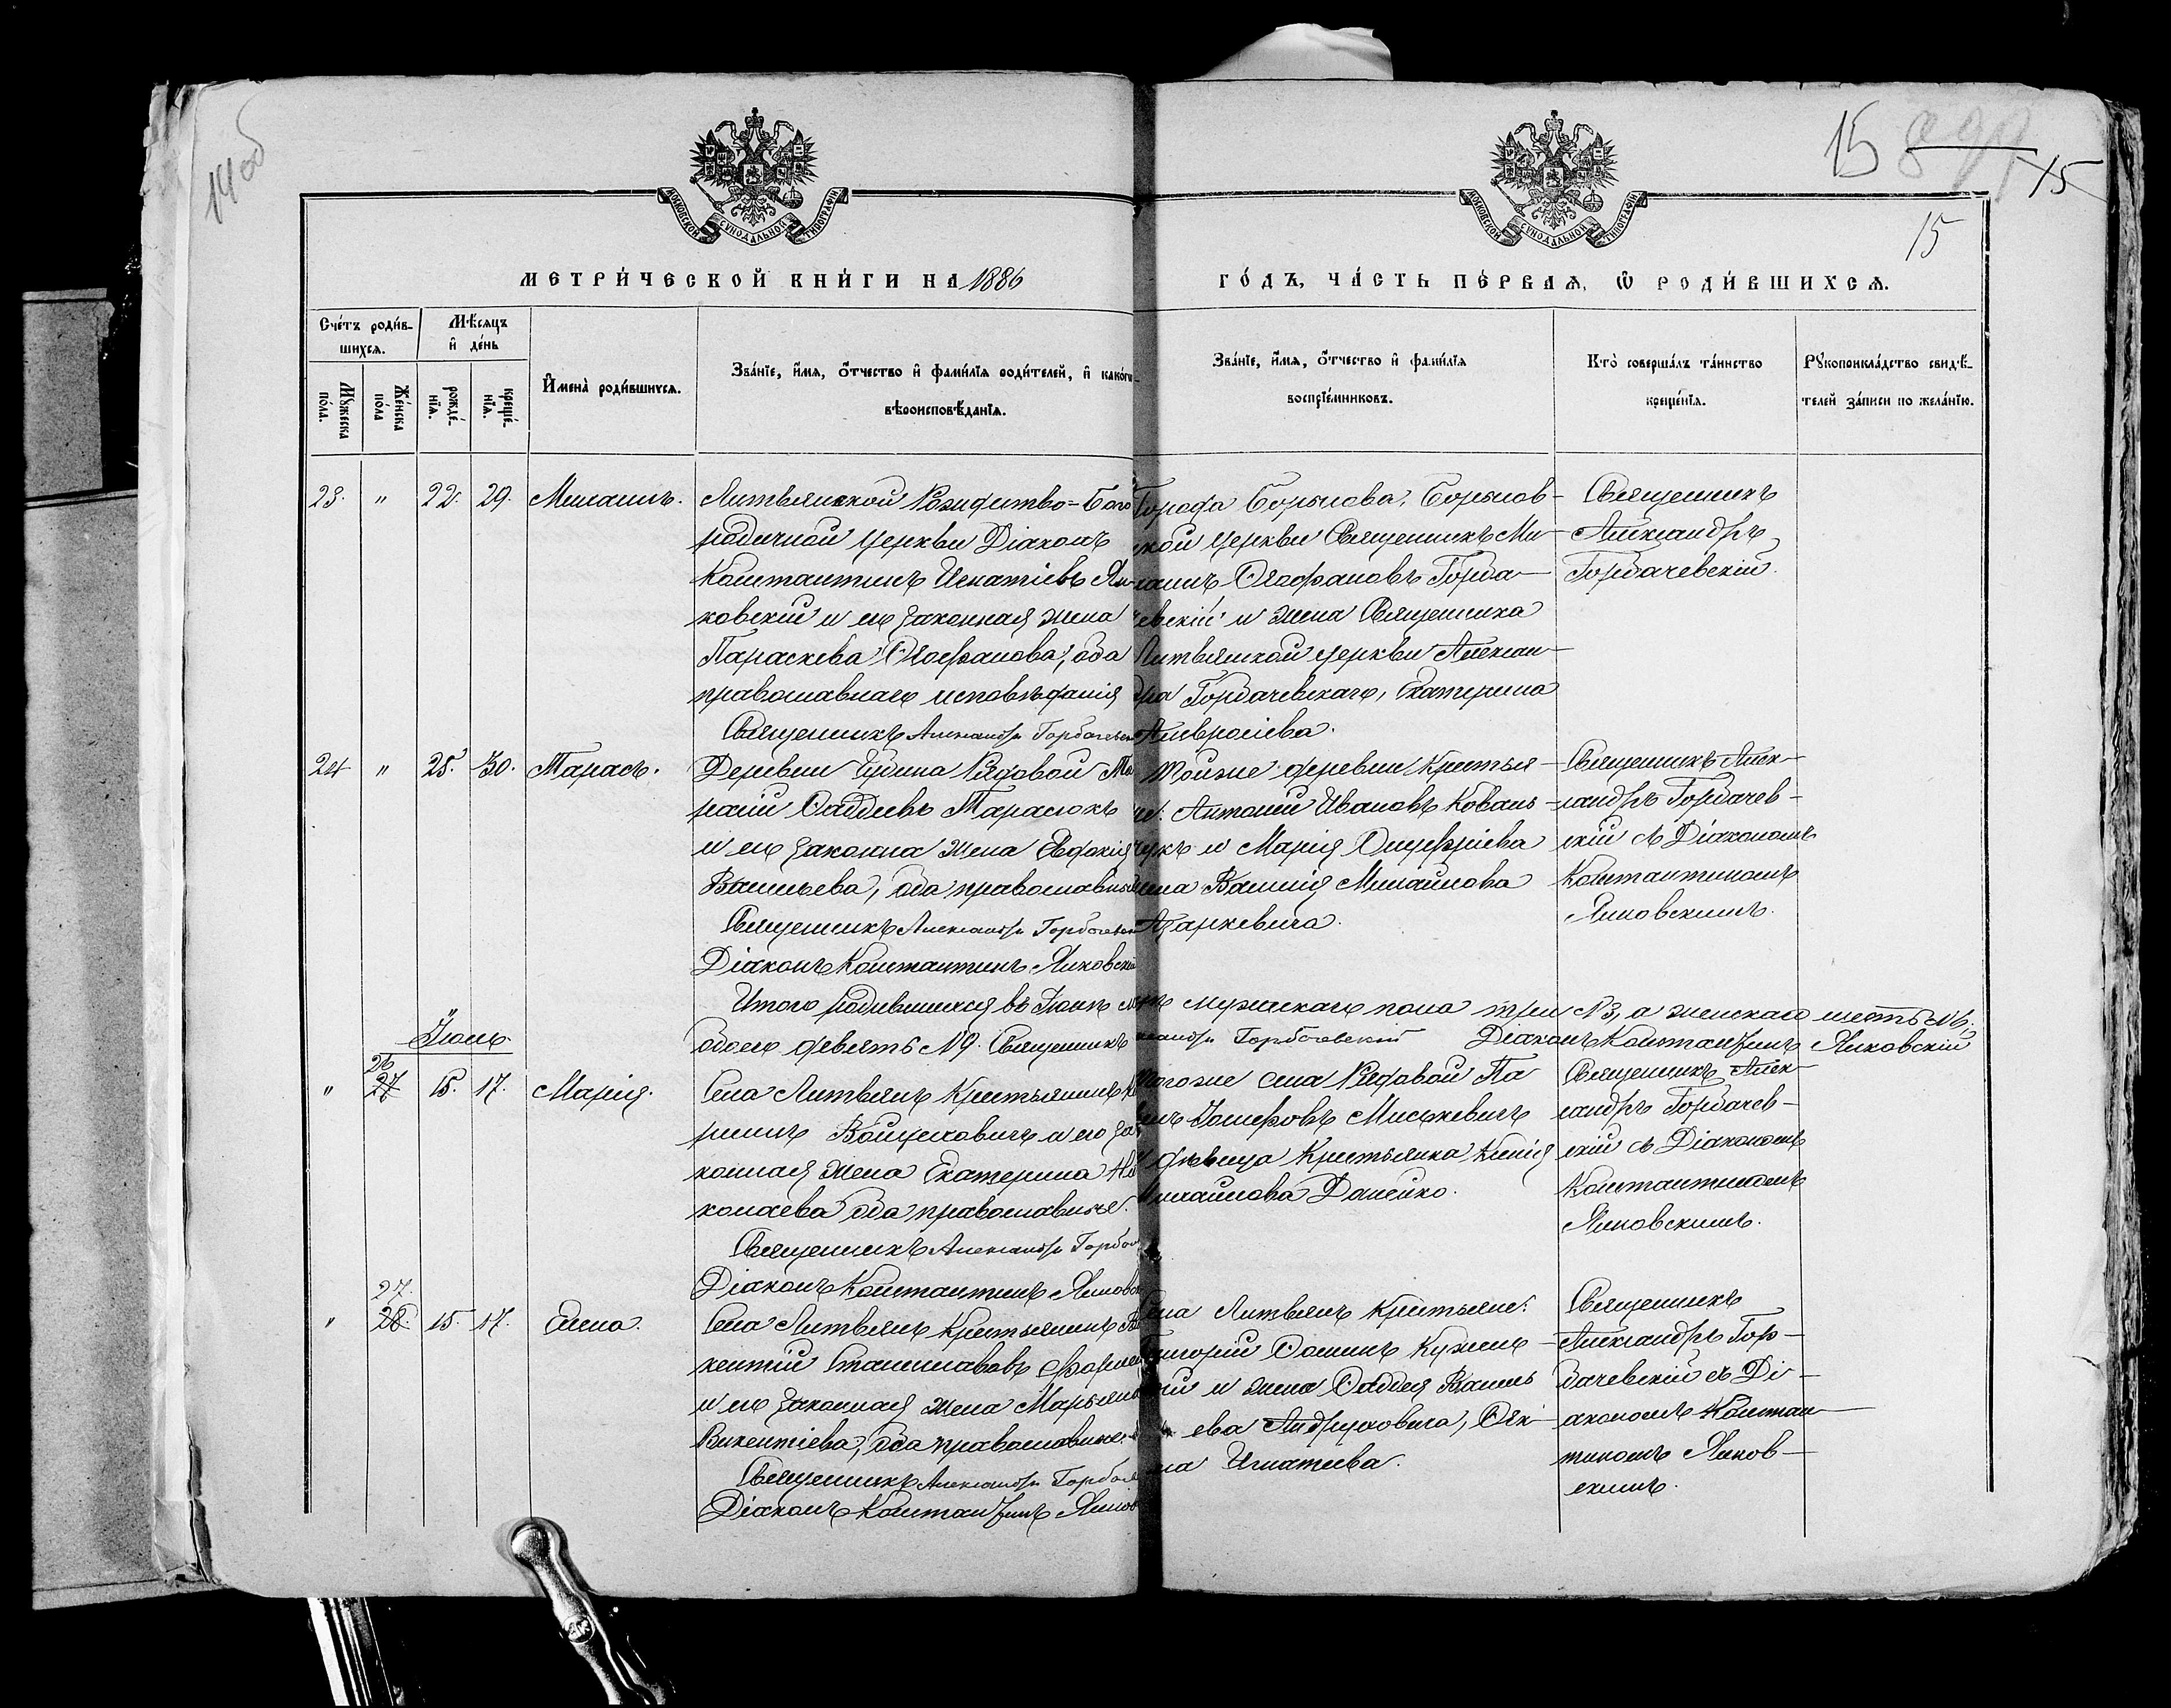 14 об
15
15
15
МОСКОВСКОЙ СУНОДАЛЬНОЙ ТИПОГРАФІИ
МОСКОВСКОЙ СУНОДАЛЬНОЙ ТИПОГРАФІИ
МЕТРИ́ЧЕСКОЙ КНИ́ГИ НА 1886
ГО́ДЪ, ЧА́СТЬ ПЕ́РВАѦ, Ѽ РОДИ́ВШИХСѦ.
Счетъ роди́в-
шихсѧ.
Мѣсѧцъ
и де́нь
Мꙋжеска
по́ла.
Же́нска
по́ла
рожде́-
нїѧ.
креще́-
нїѧ.
Имена̀ роди́вшихсѧ.
Зва́нїе, и́мѧ, о́тчество и фами́лїѧ роди́телей, и како́гѡ
вѣроисповѣ́данїѧ.
Зва́нїе, и́мѧ, о́тчество и фами́лїѧ
воспрїе́мниковъ.
Кто̀ соверша́лъ та́инство
креще́нїѧ.
Рꙋкоприкла́дство свидѣ́-
телей за́писи по жела́нїю.
23. " 22. 29. Михаилъ.
Литвянской Рождество=Бого
родичной церкви Діаконъ
Константинъ Игнатіевъ Ян-
ковскій и его законная жена
Параскева Ѳеофанова, оба
православнаго исповѣданія
Священникъ Александръ Горбачевск
Города Борисова, Борисов-
ской церкви Священникъ Ми-
хаилъ Ѳеофановъ Горба-
чевскій и жена Священника
Литвянской церкви Алексан-
дра Горбачевскаго, Екатерина
Амвросіева.
Священникъ
Александръ
Горбачевскій.
24 " 25. 30. Тарасъ.
Деревни Рядовой
Ѳаддеевъ Тарасюкъ
и его законна жена Евдокія
Васильева, оба православны
Священникъ Александръ Горбачевск
Діаконъ Константинъ Янковскій
Тойже деревни Крестья-
не: Антоній Ивановъ Коваль-
чукъ и Марія Онуфріева
жена Василія Михайлова
Азаркевича.
Священникъ Алек-
сандръ Горбачев-
скій съ Діакономъ
Константиномъ
Янковскимъ.
Итого родившихся въ Іюнѣ м-цѣ мужскаго пола три № 3, а женскаго шесть № 6.
обоего девять № 9. Священникъ Александръ Горбачевскій Діаконъ Константинъ Янковскій
Іюль
26
" 27 15. 17. Марія.
Села Литвянъ Крестьянинъ
Войцеховичъ и его за-
конная жена Екатерина Ни
колаева оба православные.
Священникъ Александръ Горбач
Діаконъ Константинъ Янковск
Тогоже села Рядовой Па
велъ Іосифовъ Миськевичъ
и дѣвица Крестьянка Ксенія
Михайлова Данейко.
Священникъ Алек-
сандръ Горбачев-
скій съ Діакономъ
Константиномъ
Янковскимъ.
27.
" 28. 15. 17. Елена.
Села Литвянъ Крестьянинъ Ви
кентій Станиславовъ
и его законная жена Марьяна
Викентіева, оба православные.
Священникъ Александръ Горбач
Діаконъ Константинъ Янков
Села Литвянъ Крестьяне:
Григорій Ѳоминъ
и жена Ѳаддея Василь
ева Андруховича, Ѳек-
ла Игнатіева.
Священникъ
Александръ Гор-
бачевскій съ Ді-
акономъ Констан-
тиномъ Янков-
скимъ.